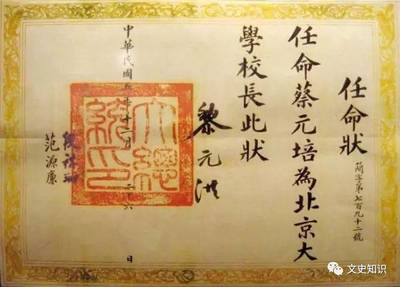 任命狀
簡字第七百九十二號
任命蔡元培為北京大
學校長此狀
黎元洪
大總統印
中華民國五年十二月二十六日
段祺瑞
范源廉
文史知识